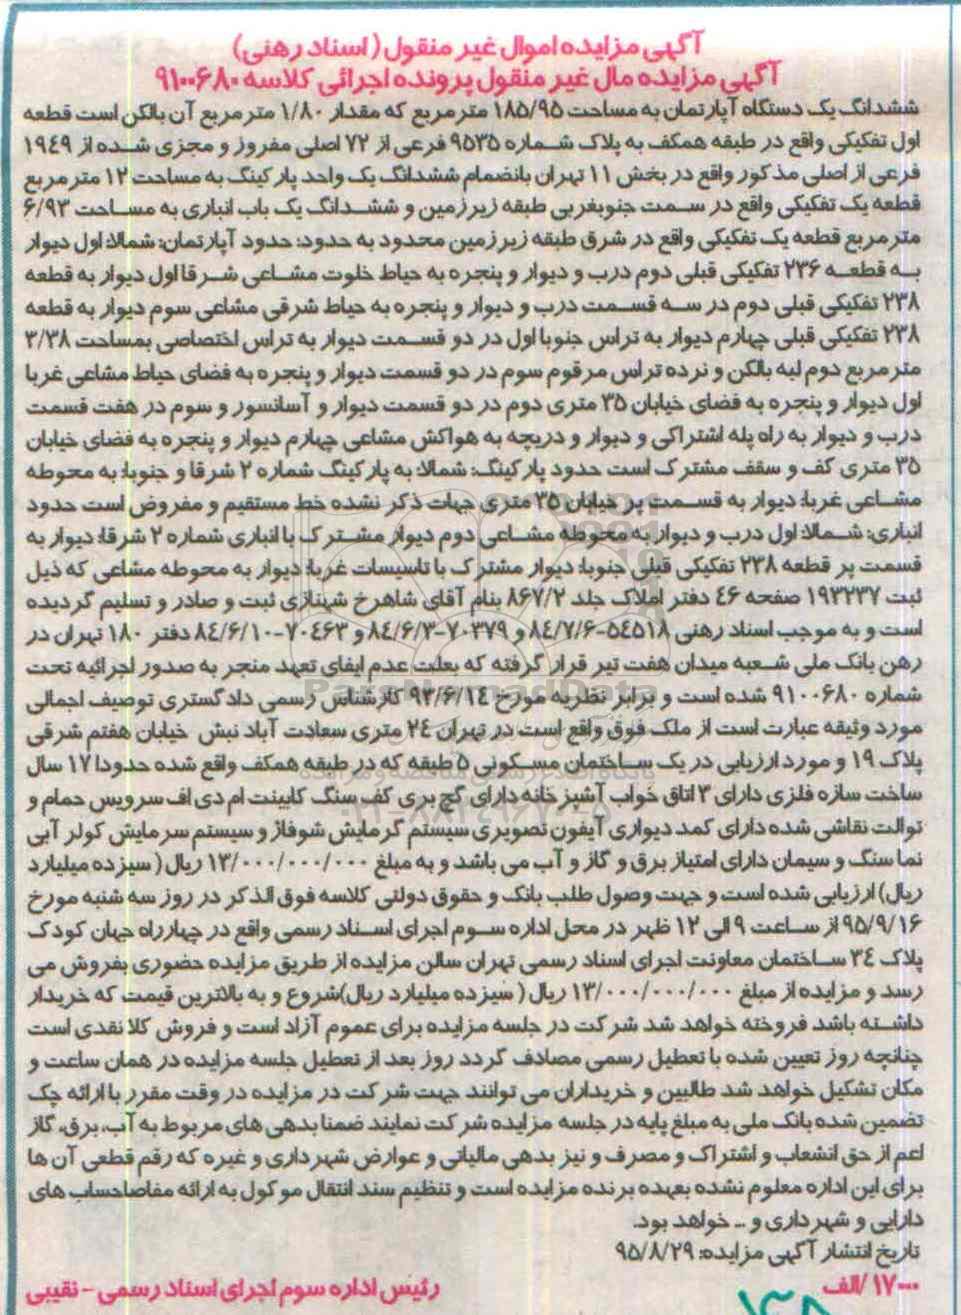 آگهی مزایده اموال غیر منقول ( اسناد رهنی)
آگهی مزایده مال غیر منقول پرونده اجرائی کلاسه ۹۱۰۰۶۸۰
ششدانگ یک دستگاه آپارتمان به مساحت ۱۸۵/۹۵ متر مربع که مقدار ۱/۸۰ متر مربع آن بالکن است قطعه
اول تفکیکی واقع در طبقه همکف به پلاک شماره ۹۵۳۵ فرعی از ۷۲ اصلی مفروز و مجزی شده از ۱۹۴۹
فرعی از اصلی مذکور واقع در بخش ۱۱ تهران بانضمام ششدانگ یک واحد پارکینگ به مساحت ۱۲ متر مربع
قطعه یک تفکیکی واقع در سمت جنوبغربی طبقه زیرزمین و ششدانگ یک باب انباری به مساحت ۶/۹۳
متر مربع قطعه یک تفکیکی واقع در شرق طبقه زیرزمین محدود به حدود: حدود آپارتمان: شمالا: اول دیوار
به قطعه ۲۳۶ تفکیکی قبلی دوم درب و دیوار و پنجره به حیاط خلوت مشاعی شرقا اول دیوار به قطعه
۲۳۸ تفکیکی قبلی دوم در سه قسمت درب و دیوار و پنجره به حیاط شرقی مشاعی سوم دیوار به قطعه
۲۳۸ تفکیکی قبلی چهارم دیوار به تراس جنوبا اول در دو قسمت دیوار به تراس اختصاصی بمساحت ۳/۳۸
متر مربع دوم لبه بالکن و نرده تراس مرقوم سوم در دو قسمت دیوار و پنجره به فضای حیاط مشاعی غربا
اول دیوار و پنجره به فضای خیابان ۳۵ متری دوم در دو قسمت دیوار و آسانسور و سوم در هفت قسمت
درب و دیوار به راه پله اشتراکی و دیوار و دریچه به هواکش مشاعی چهارم دیوار و پنجره به فضای خیابان
۳۵ متری کف و سقف مشترک است حدود پارکینگ: شمالا: به پارکینگ شماره ۲ شرقا و جنوبا: به محوطه
مشاعی غربا: دیوار به قسمت پر خیابان ۳۵ متری جهات ذکر نشده خط مستقیم و مفروض است حدود
انباری: شمالا: اول درب و دیوار به محوطه مشاعی دوم دیوار مشترک با انباری شماره ۲ شرقا: دیوار به
قسمت پر قطعه ۲۳۸ تفکیکی قبلی جنوبا: دیوار مشترک با تاسیسات غربا: دیوار به محوطه مشاعی که ذیل
ثبت ۱۹۳۲۳۷ صفحه ۴۶ دفتر املاک جلد ۸۶۷/۲ بنام آقای شاهرخ شهنازی ثبت و صادر و تسلیم گردیده
است و به موجب اسناد رهنی ۵۴۵۱۸-۸۴/۷/۶ و ۷۰۳۷۹-۸۴/۶/۳ و ۷۰۴۶۳-۸۴/۶/۱۰ دفتر ۱۸۰ تهران در
رهن بانک ملی شعبه میدان هفت تیر قرار گرفته که بعلت عدم ایفای تعهد منجر به صدور اجرائیه تحت
شماره ۹۱۰۰۶۸۰ شده است و برابر نظریه مورخ ۹۳/۶/۱۴ کارشناس رسمی دادگستری توصیف اجمالی
مورد وثیقه عبارت است از ملک فوق واقع است در تهران ۲۴ متری سعادت آباد نبش خیابان هفتم شرقی
پلاک ۱۹ و مورد ارزیابی در یک ساختمان مسکونی ۵ طبقه که در طبقه همکف واقع شده حدودا ۱۷ سال
ساخت سازه فلزی دارای ۳ اتاق خواب آشپزخانه دارای گچ بری کف سنگ کابینت ام دی اف سرویس حمام و
توالت نقاشی شده دارای کمد دیواری آیفون تصویری سیستم گرمایش شوفاژ و سیستم سرمایش کولر آبی
نما سنگ و سیمان دارای امتیاز برق و گاز و آب می باشد و به مبلغ ۱۳/۰۰۰/۰۰۰/۰۰۰ ریال ( سیزده میلیارد
ریال) ارزیابی شده است و جهت وصول طلب بانک و حقوق دولتی کلاسه فوق الذکر در روز سه شنبه مورخ
۹۵/۹/۱۶ از ساعت ۹ الی ۱۲ ظهر در محل اداره سوم اجرای اسناد رسمی واقع در چهارراه جهان کودک
پلاک ۳۴ ساختمان معاونت اجرای اسناد رسمی تهران سالن مزایده از طریق مزایده حضوری بفروش می
رسد و مزایده از مبلغ ۱۳/۰۰۰/۰۰۰/۰۰۰ ریال ( سیزده میلیارد ریال)شروع و به بالاترین قیمت که خریدار
داشته باشد فروخته خواهد شد شرکت در جلسه مزایده برای عموم آزاد است و فروش کلا نقدی است
چنانچه روز تعیین شده با تعطیل رسمی مصادف گردد روز بعد از تعطیل جلسه مزایده در همان ساعت و
مکان تشکیل خواهد شد طالبین و خریداران می توانند جهت شرکت در مزایده در وقت مقرر با ارائه چک
تضمین شده بانک ملی به مبلغ پایه در جلسه مزایده شرکت نمایند ضمنا بدهی های مربوط به آب، برق، گاز
اعم از حق انشعاب و اشتراک و مصرف و نیز بدهی مالیاتی و عوارض شهرداری و غیره که رقم قطعی آن ها
برای این اداره معلوم نشده بعهده برنده مزایده است و تنظیم سند انتقال موکول به ارائه مفاصاحساب های
دارایی و شهرداری و ... خواهد بود.
تاریخ انتشار آگهی مزایده: ۹۵/۸/۲۹
۱۷۰۰۰/الف
رئیس اداره سوم اجرای اسناد رسمی - نقیبی